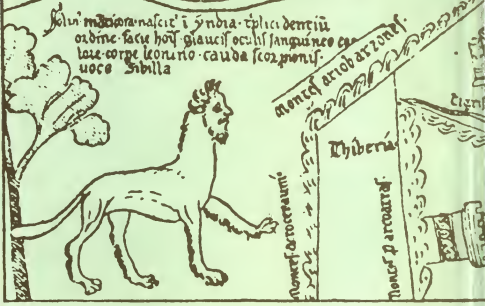 Solin' māticora · nascit' ī yndia · tplici dentiū
ordine · facie hoīs glaucis oculis sanguineo co
lore · corpe leonino · cauda scorpionis ·
voce Sibilla
montes ariobarzones
Thiberia
montes acroceraunii